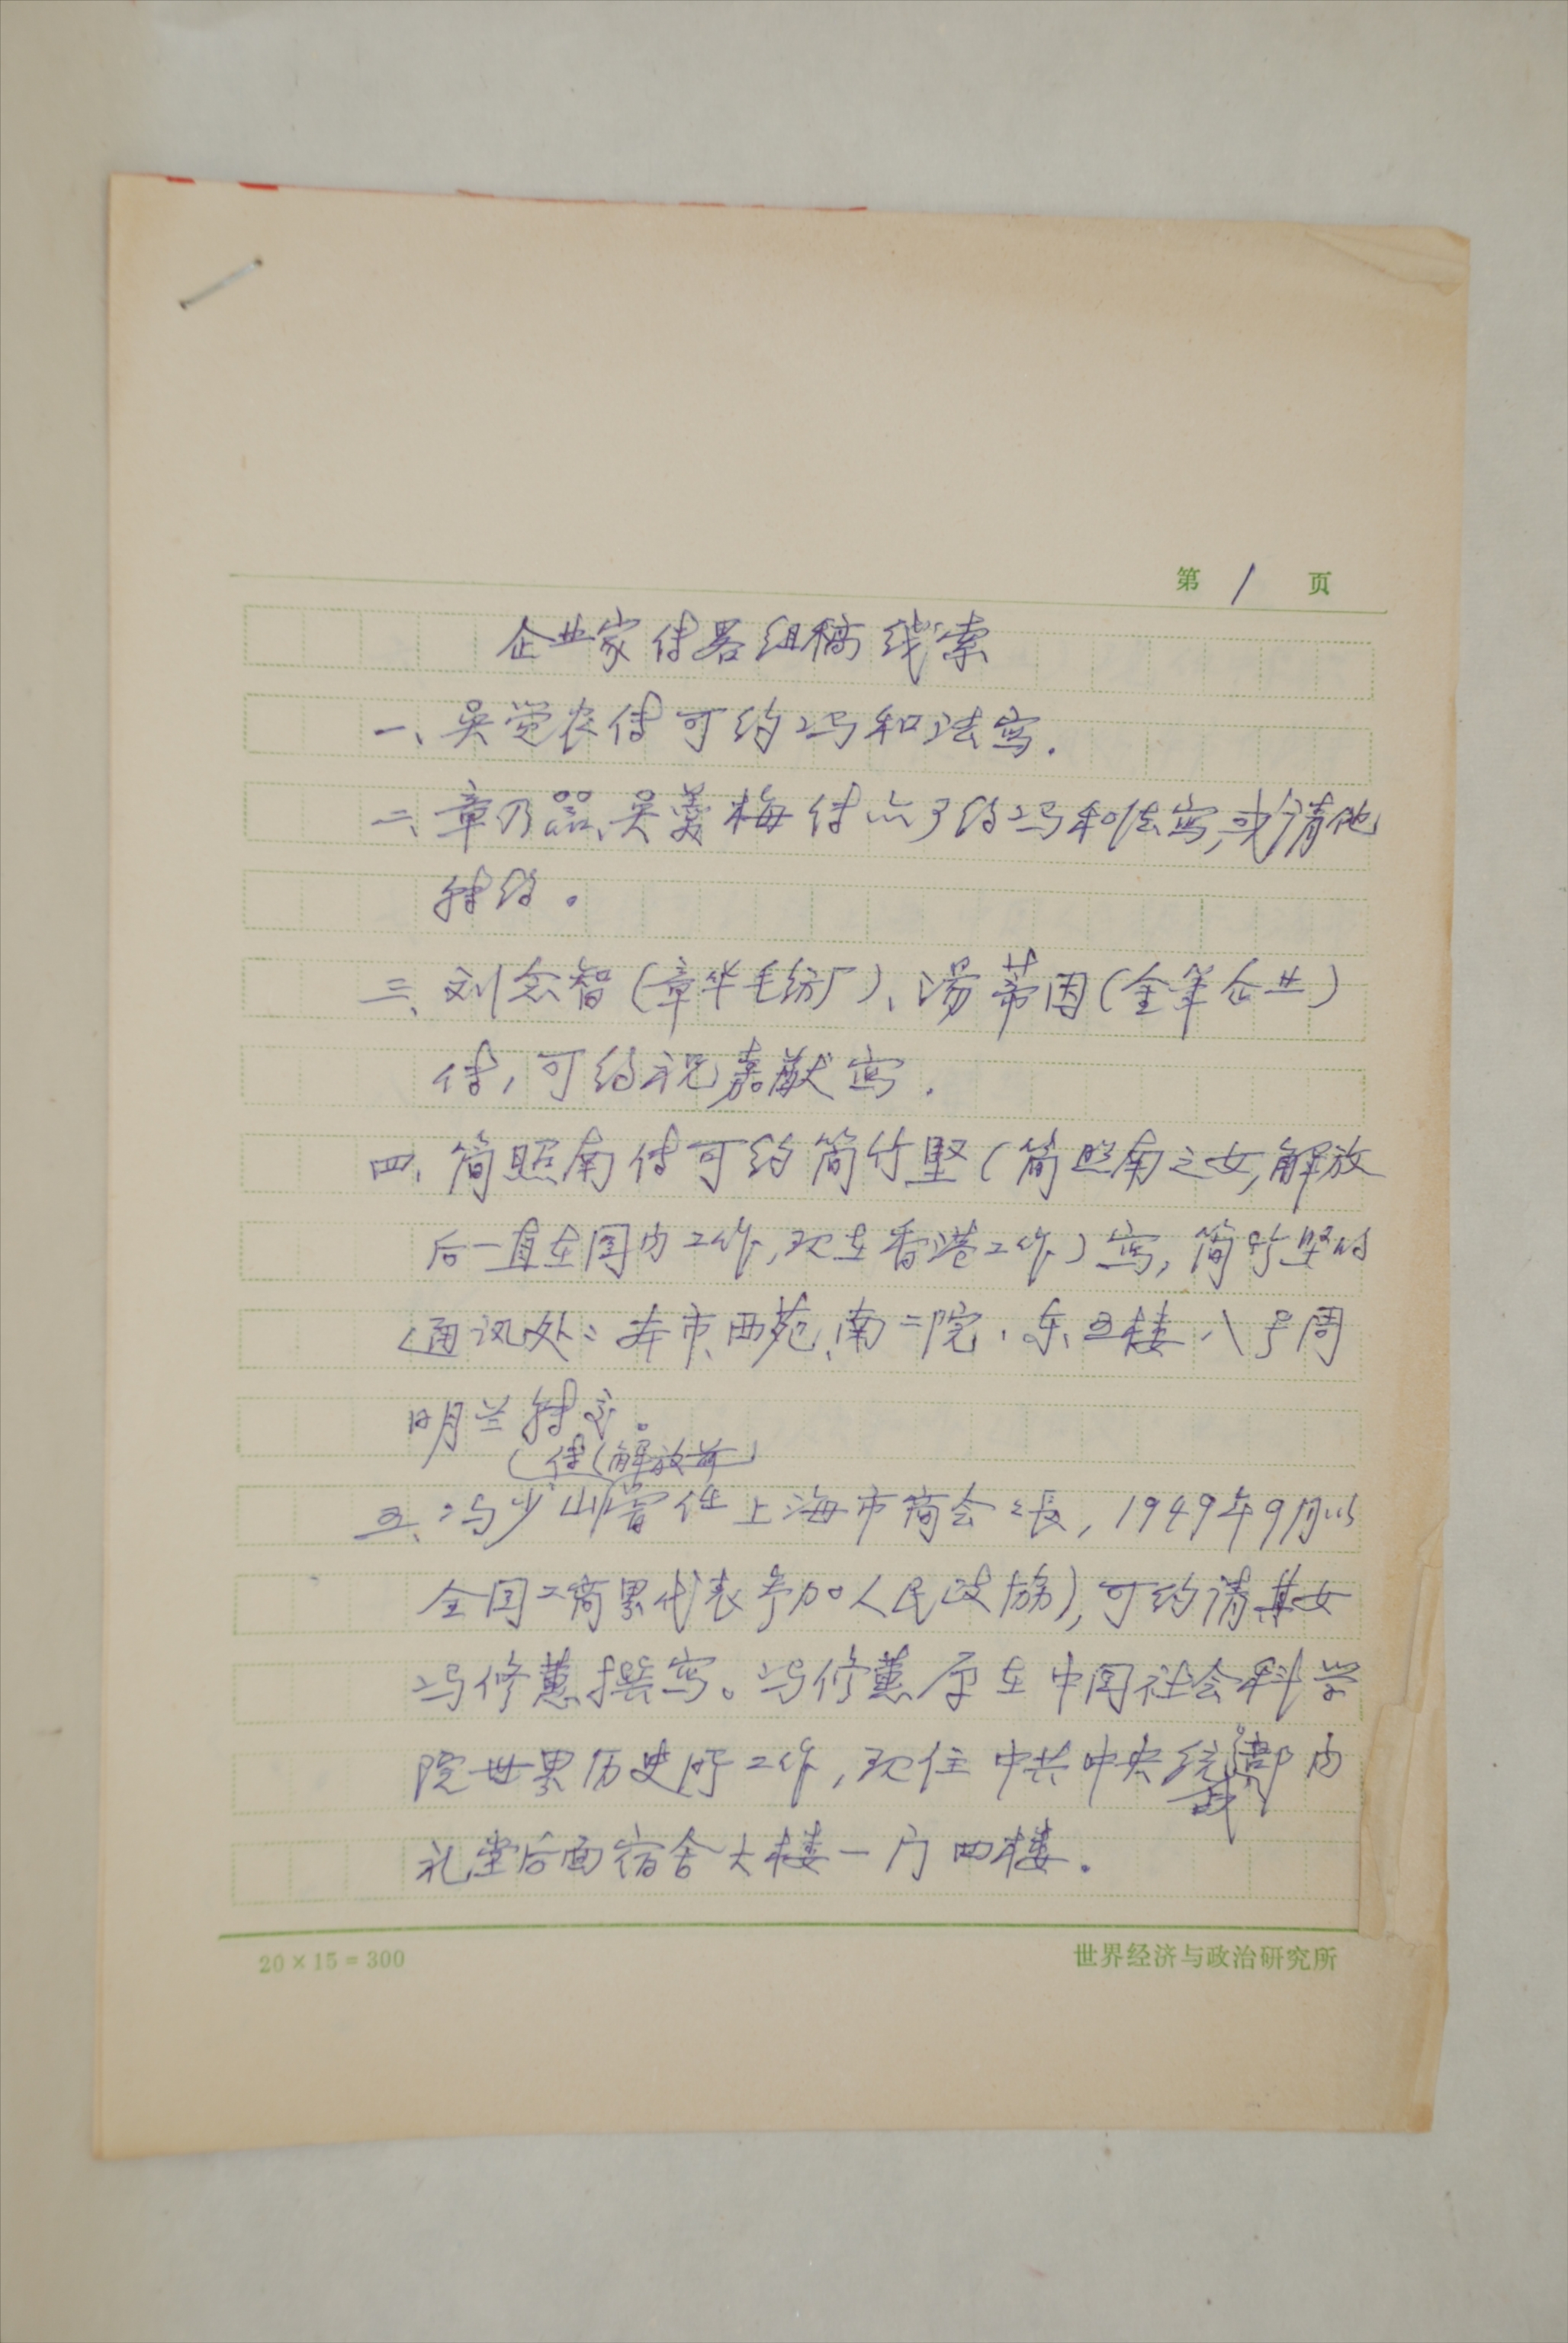 第 1 页
企业家传略组稿线索
一、吴觉农传可约冯和法写.
二、章乃器、吴羹梅传亦可约冯和法写,或请他
转约。
三、刘念智(章华毛纺厂)、汤蒂因(金笔企业)
传,可约祝嘉猷写.
四、简照南传可约简竹坚(简照南之女,解放
后一直在国内工作,现在香港工作)写,简竹坚的
通讯处:本市、西苑、南二院、东五楼八号周
明兰转交。
传(解放前
五、冯少山曾任上海市商会会长,1949年9月以
全国工商界代表参加人民政协),可约请其女
冯修蕙撰写。冯修蕙原在中国社会科学
院世界历史所工作,现住中共中央统战部内
礼堂后面宿舍大楼一门四楼.
20×15=300
世界经济与政治研究所